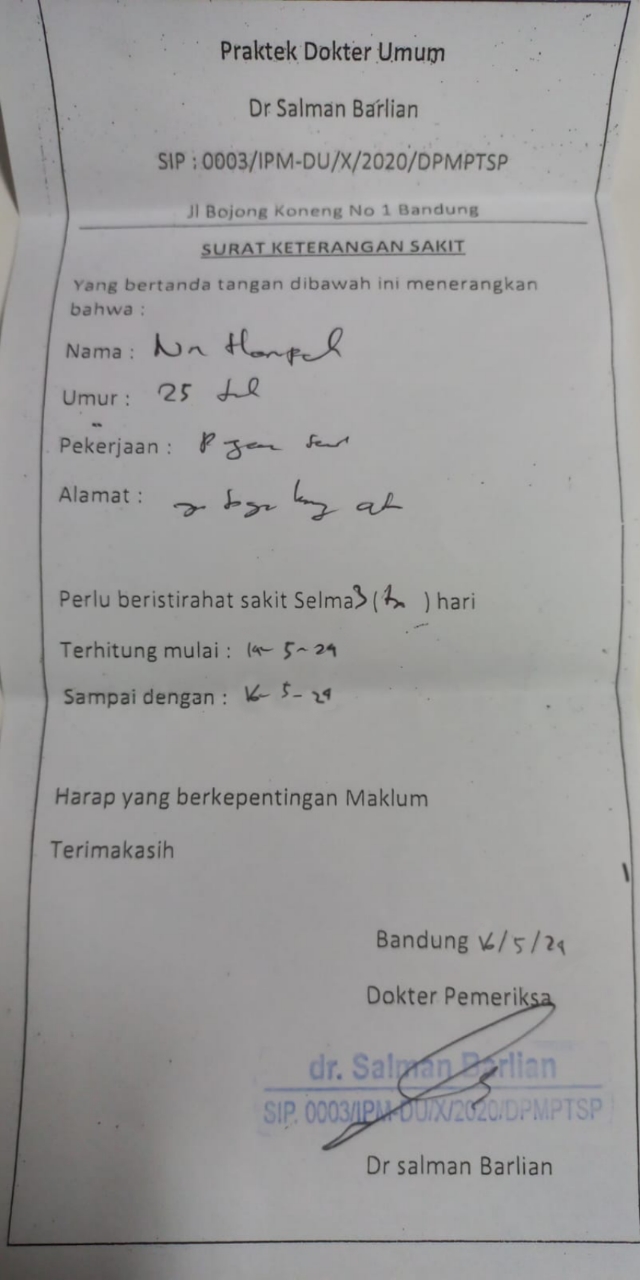 Praktek Dokter Umum
Dr Salman Barlian
SIP : 0003/IPM-DU/X/2020/DPMPTSP
Jl Bojong Koneng No 1 Bandung
SURAT KETERANGAN SAKIT
Yang bertanda tangan dibawah ini menerangkan
bahwa :
Nama :
Umur : 25
Pekerjaan :
Alamat :
Perlu beristirahat sakit Selma 3 ( ) hari
Terhitung mulai : 5-24
Sampai dengan : 16-5-24
Harap yang berkepentingan Maklum
Terimakasih
Bandung 16/5/24
Dokter Pemeriksa
dr. Salman Barlian
SIP. 0003/IPM-DU/X/2020/DPMPTSP
Dr salman Barlian